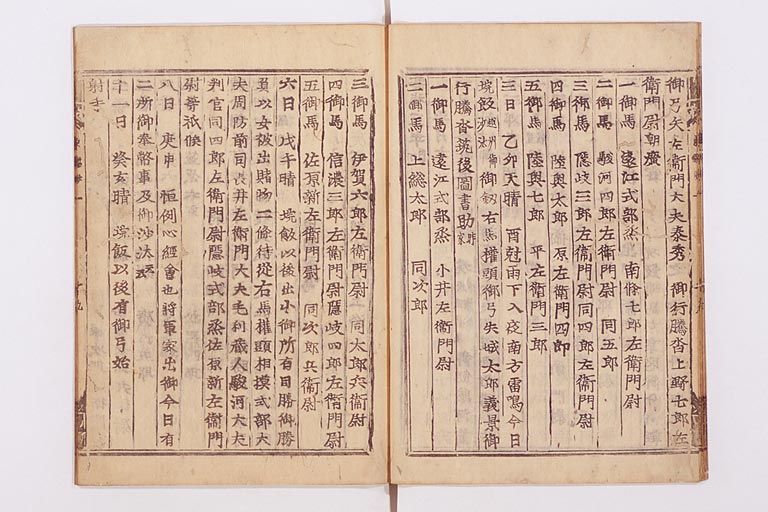 御弓矢左衛門大夫泰秀 御行騰沓上野七郎左
衛門尉朝廣
一御馬 遠江式部丞 南條七郎左衛門尉
二御馬 駿河四郎左衛門尉 同五郎
三御馬 隠岐三郎左衛門尉同四郎左衛門尉
四御馬 陸奥太郎 原左衛門四郎
五御馬 陸奥七郎 平左衛門三郎
三日 乙卯天晴 酉尅雨下入夜南方雷鳴今日
垸飯 御釼右馬權頭御弓矢城太郎義景御
行騰沓筑後圖書助
一御馬 遠江式部丞 小井左衛門尉
二御馬 上総太郎 同次郎
三御馬 伊賀六郎左衛門尉 同太郎兵衛尉
四御馬 信濃三郎左衛門尉隠岐四郎左衛門尉
五御馬 佐原新左衛門尉 同次郎兵衛尉
六日 戊午晴 垸飯以後出小御所有目勝御勝
負以女被出賭物二條侍從右馬權頭相摸式部大
夫周防前司表井左衛門大夫毛利藏人駿河大夫
判官同四郎左衛門尉隠岐式部丞佐原新左衛門
尉等祇候
八日 庚申 恒例心經會也將軍家出御今日有
二所御奉幣事及御沙汰
十一日 癸亥晴 垸飯以後有御弓始
射手